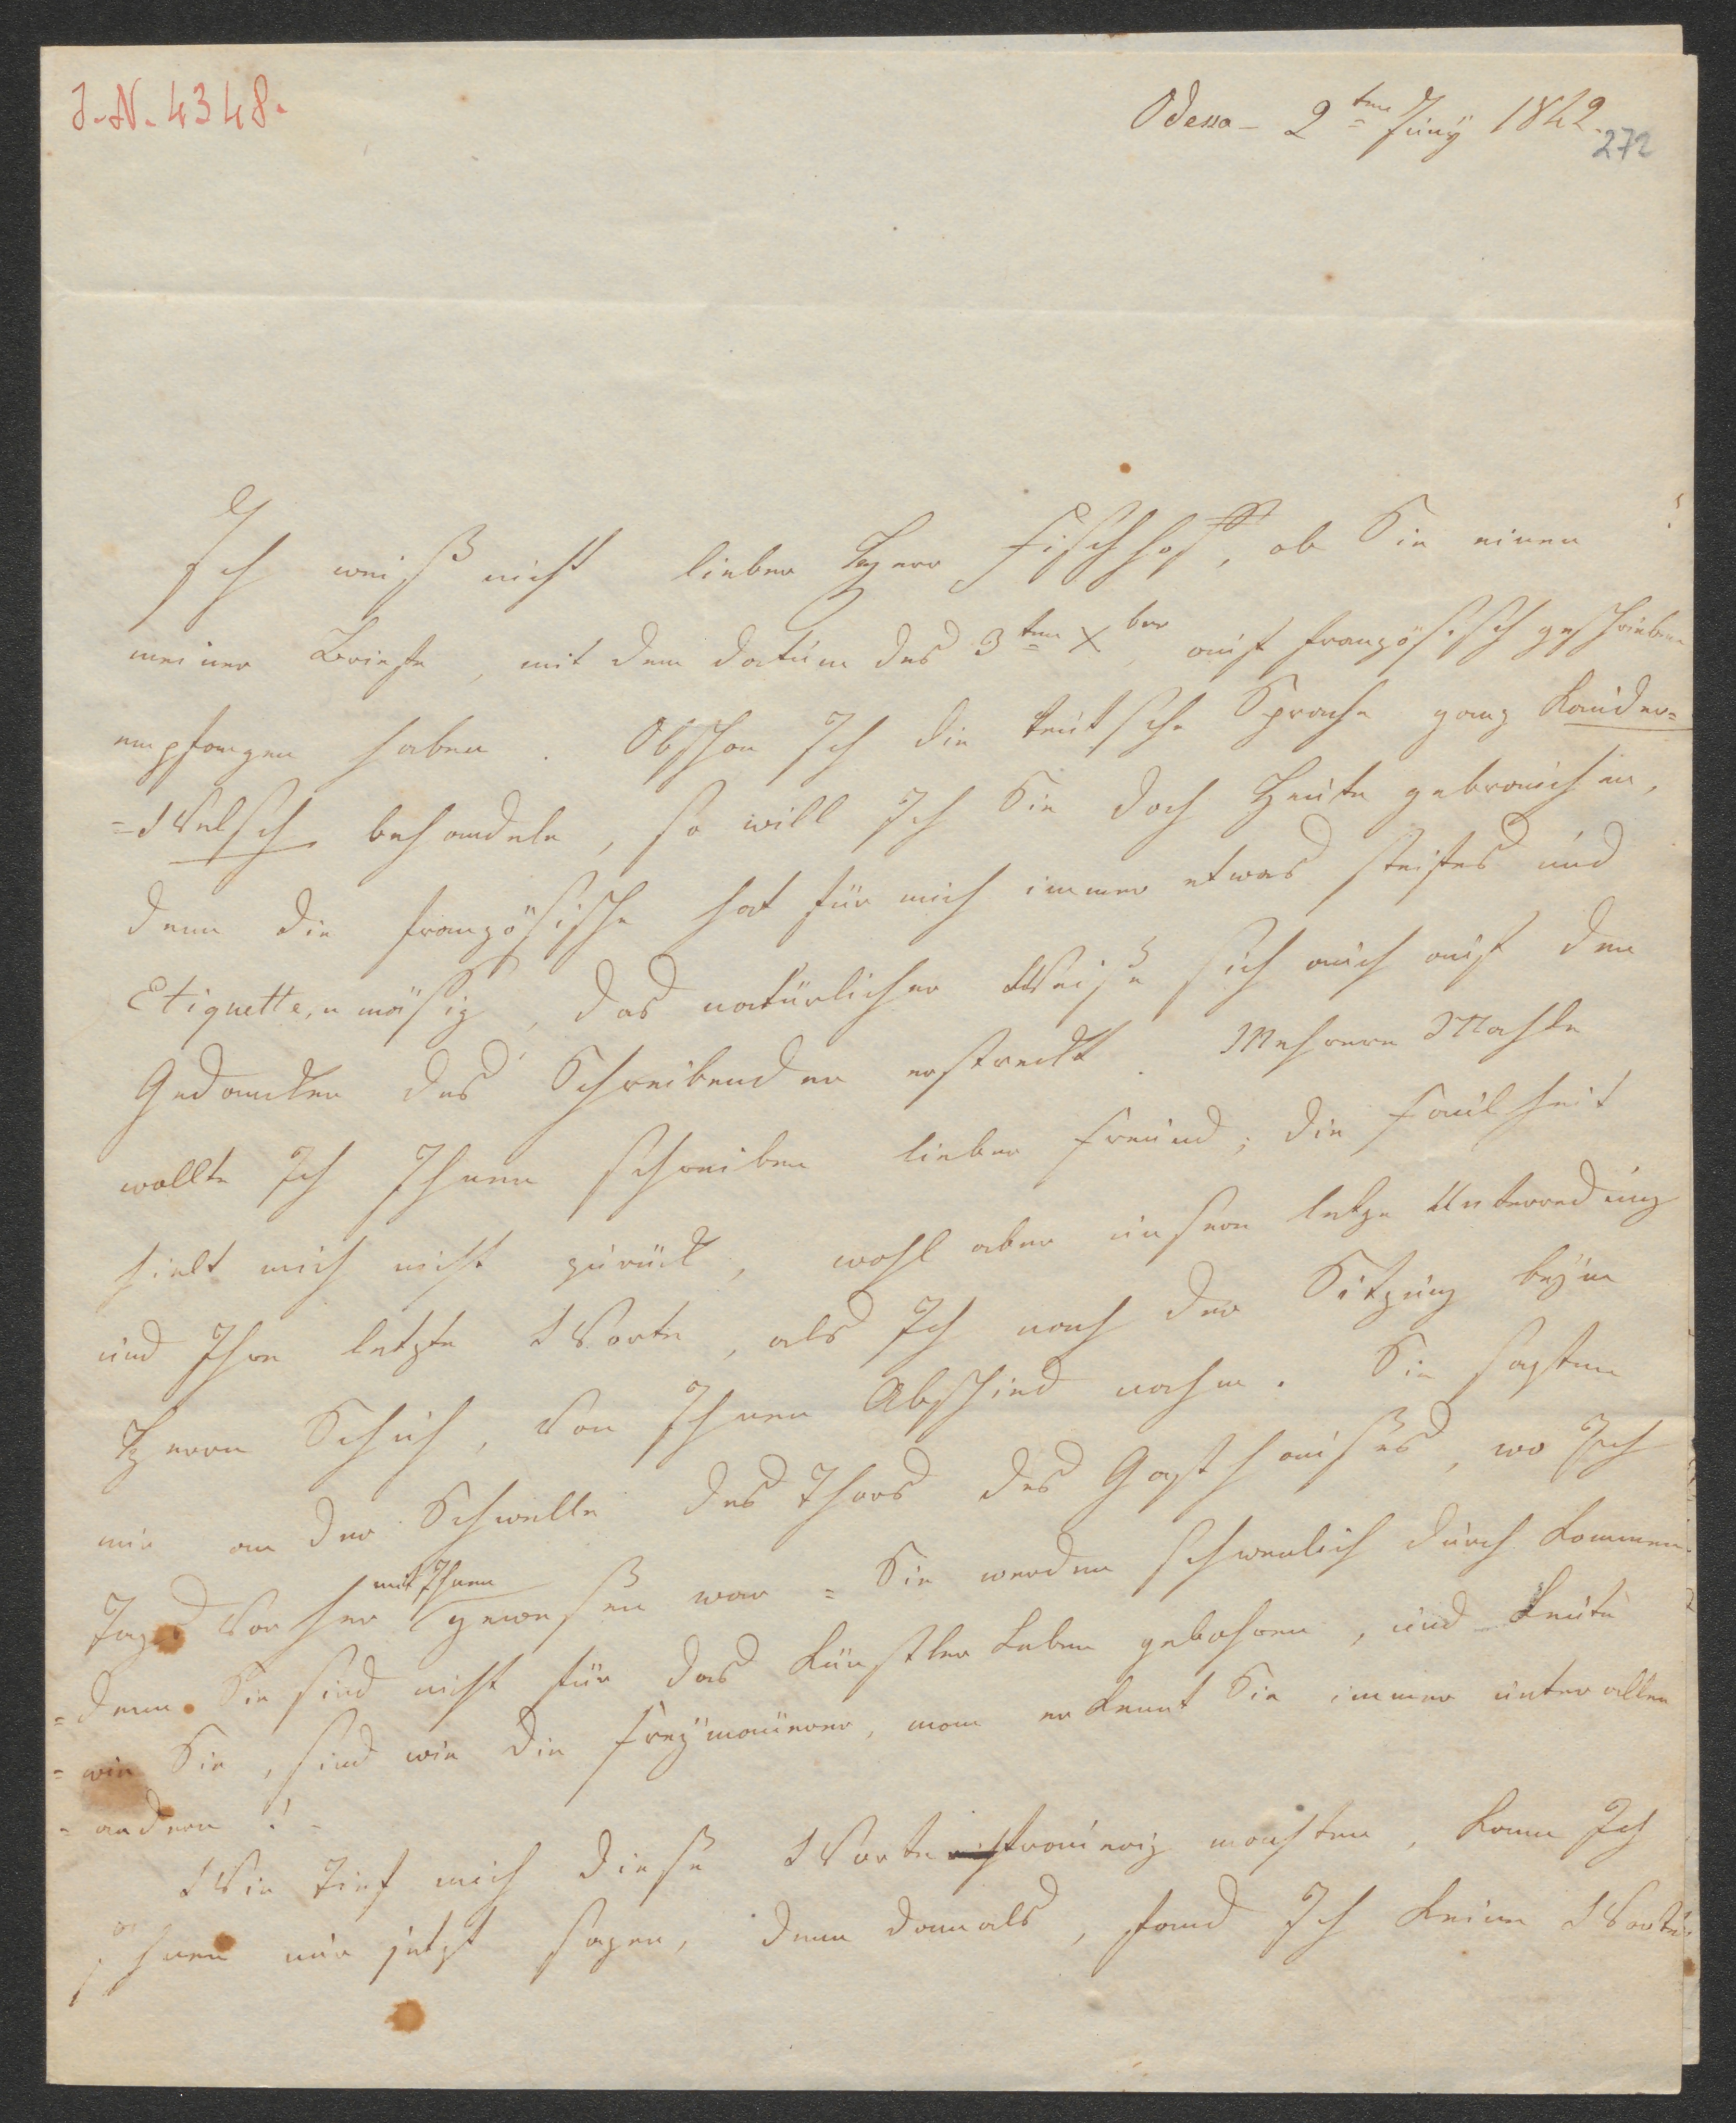 J.N. 4348.
Odessa - 2ten Juny 1842.
272
Ich weiß nicht lieber Herr Fischhof, ob Sie einen
meiner Briefe, mit dem Datum des 3ten Xber, auf französisch geschrieben
empfangen haben. Obschon Ich die teutsche Sprache ganz Kauder=
=Welsch behandele, so will Ich Sie doch Heute gebrauchen,
denn die französische hat für mich immer etwas steifes und
Etiquette,n mäßig, das natürlicher Weise sich auch auf den
Gedancken des Schreibenden erstreckt. Mehrere Mahle
wollte Ich Ihnen schreiben lieber Freund; die Faulheit
hielt mich nicht zurück, wohl aber unsere letze Unterredung
und Ihre letzte Worte, als Ich nach der Sitzung bey'm
Herrn Schuh, von Ihnen Abschied nahm. Sie sagten
mir an der Schwelle des Thors des Gasthauses, wo Ich
Tags vorher mit Ihnen gewesen war = Sie werden schwerlich durch kommen
=denn Sie sind nicht für das Künstler Leben gebohren, und Leute
= wie Sie, sind wie die Freymauerer, man erkennt Sie immer unter allen
= andern!-
Wie Tief mich diese Worte traurig machten, kann Ich
Ihnen nur jetzt sagen, denn damals, fand Ich keine Worte